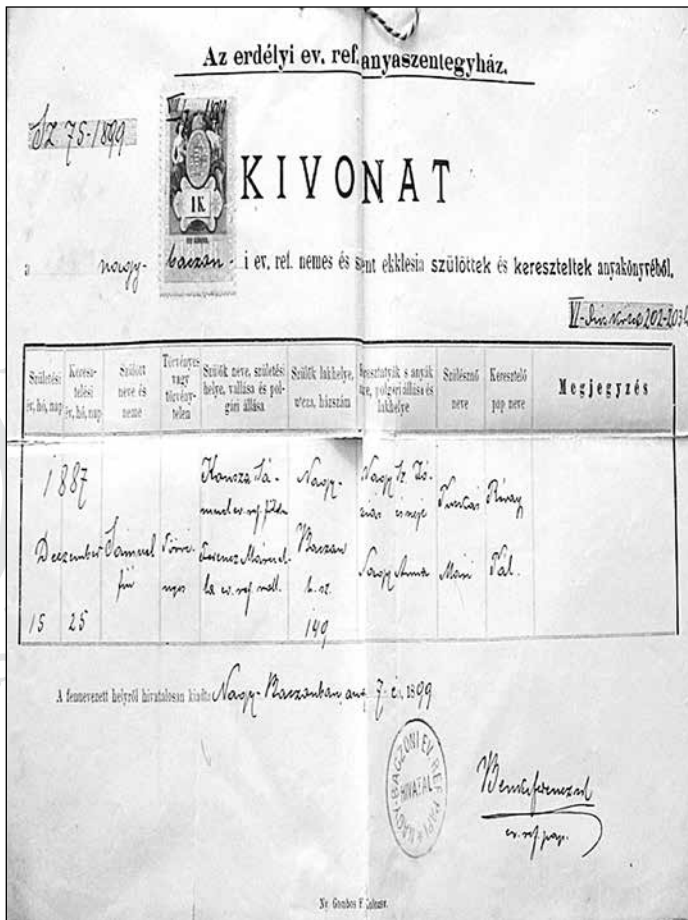 Az erdélyi ev. ref. anyaszentegyház.
Sz 75-1899
1K.
KIVONAT
a nagy-baczon-i ev. ref. nemes és szent ekklesia szülöttek és kereszteltek anyakönyvéből.
VI 202-203
Születési év, hó, nap
Keresztelési év, hó, nap
Szülött neve és neme
Törvényes vagy törvénytelen
Szülők neve, születési helye, vallása és polgári állása
Szülők lakhelye, utcza, házszám
Keresztatyák s anyák neve, polgári állása és lakhelye
Szülésznő neve
Keresztelő pap neve
Megjegyzés
1887
Deczember
15
25
Sámuel
fiú
Törvényes
Sámuel ev. ref.
Ferencz
ev. ref. vall.
Nagy-
Baczon
h. sz.
149
Nagy Sz.
és neje
Nagy Anna
Mári
Pál.
A fennevezett helyről hivatalosan kiadta Nagy-Baczonban, aug. 7-én, 1899
NAGY-BACZONI EV. REF. PAPI HIVATAL
Benkő Ferencz
ev. ref. pap.
Ny. Gombos F. Kolozsv.